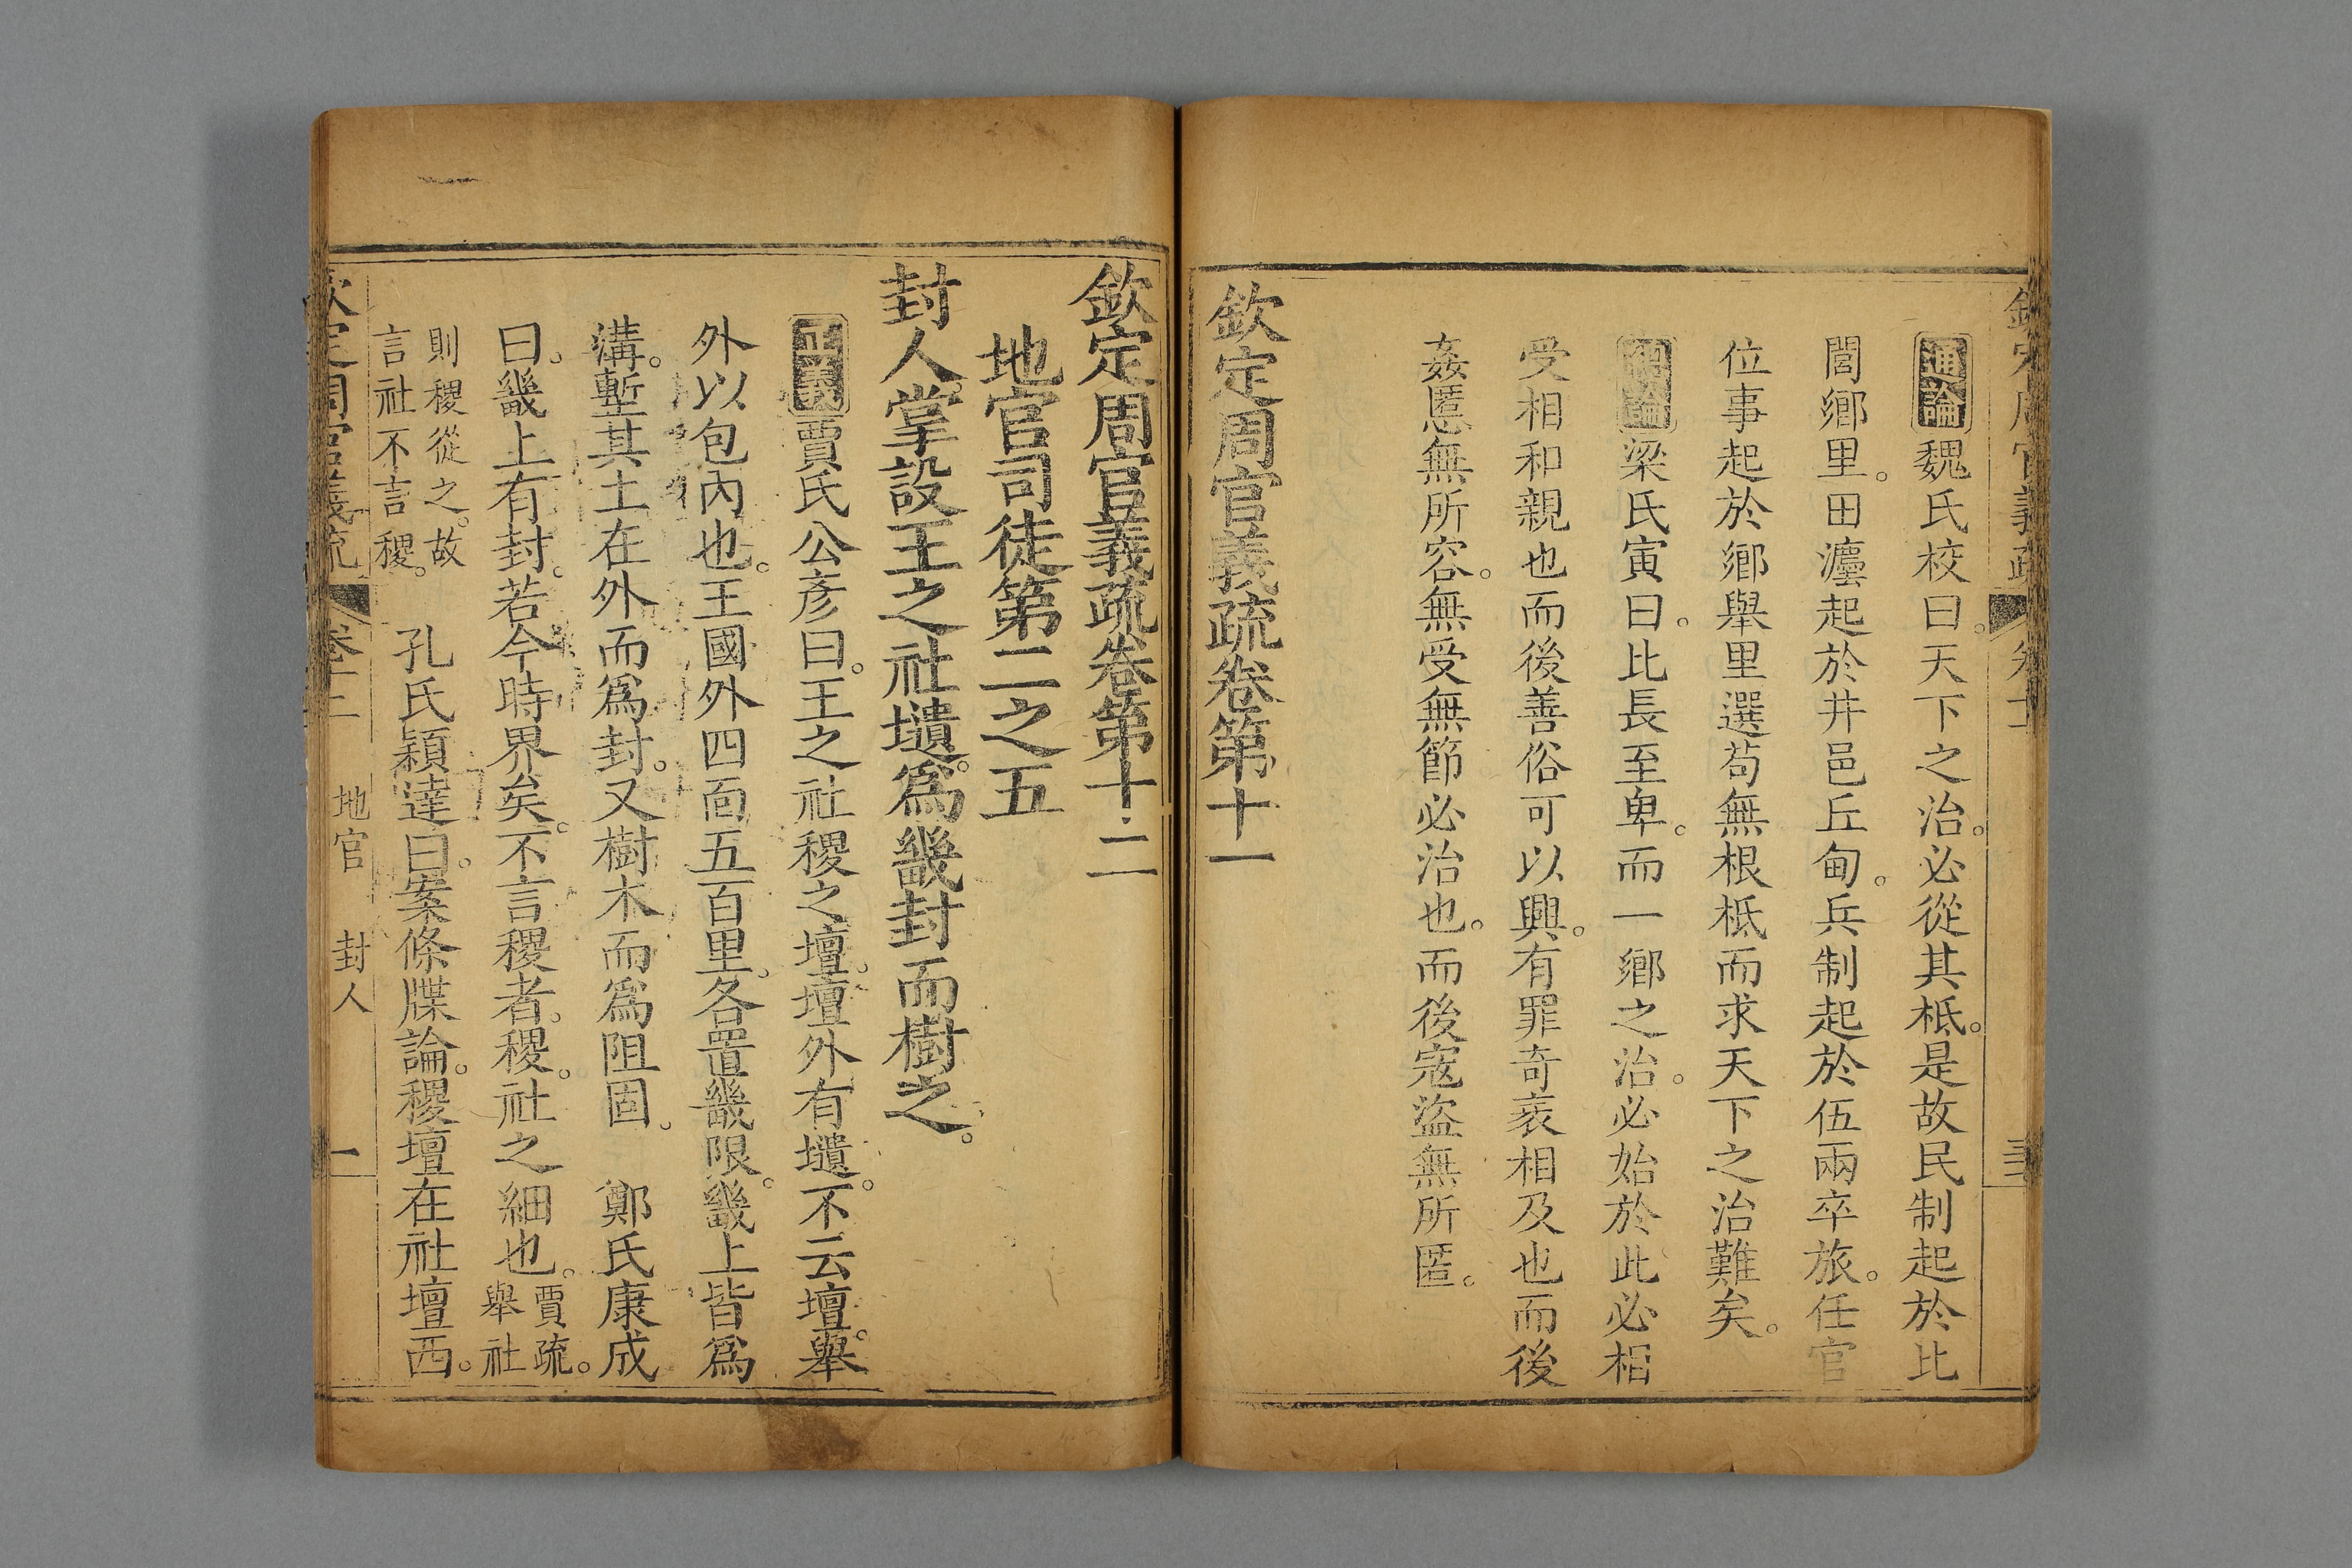 通論魏氏校曰。天下之治。必從其柢。是故民制起於比
閭鄉里。田灋起於井邑丘甸。兵制起於伍兩卒旅。任官
位事起於鄉舉里選苟無根柢而求天下之治難矣。
總論梁氏寅曰。比長至卑。而一鄉之治。必始於此必相
受相和親也而後善俗可以興。有罪奇衺相及也而後
姦慝無所容。無受無節必治也。而後寇盜無所匿。
欽定周官義疏卷第十一
欽定周官義疏卷第十二
地官司徒第二之五
封人。掌設王之社壝。爲畿封而樹之。
正義賈氏公彥曰。王之社稷之壇。壇外有壝。不云壇。舉
外以包內也。王國外四面五百里。各置畿限。畿上皆爲
溝。塹其土在外而爲封。又樹木而爲阻固。 鄭氏康成
曰。畿上有封。若今時界矣。不言稷者。稷。社之細也。賈疏。舉社
則稷從之。故言社不言稷。 孔氏穎達曰。案條牒論。稷壇在社壇西。
欽定周官義疏 卷十二 地官 封人 一